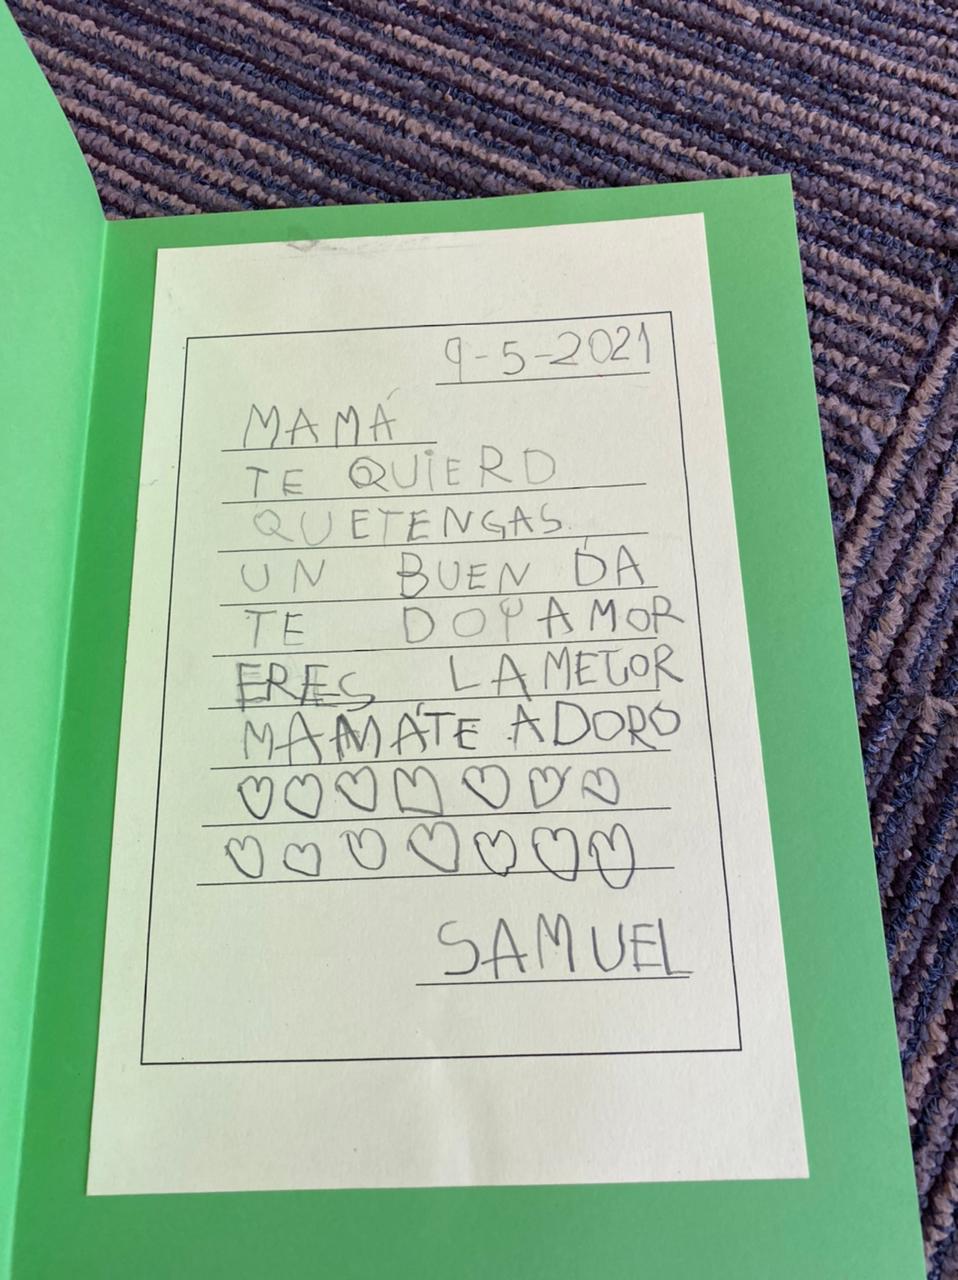 9-5-2021
MAMÁ
TE QUIERO
QUETENGAS
UN BUEN DÍA
TE DOY AMOR
ERES LA MEJOR
MAMÁ TE ADORO
SAMUEL